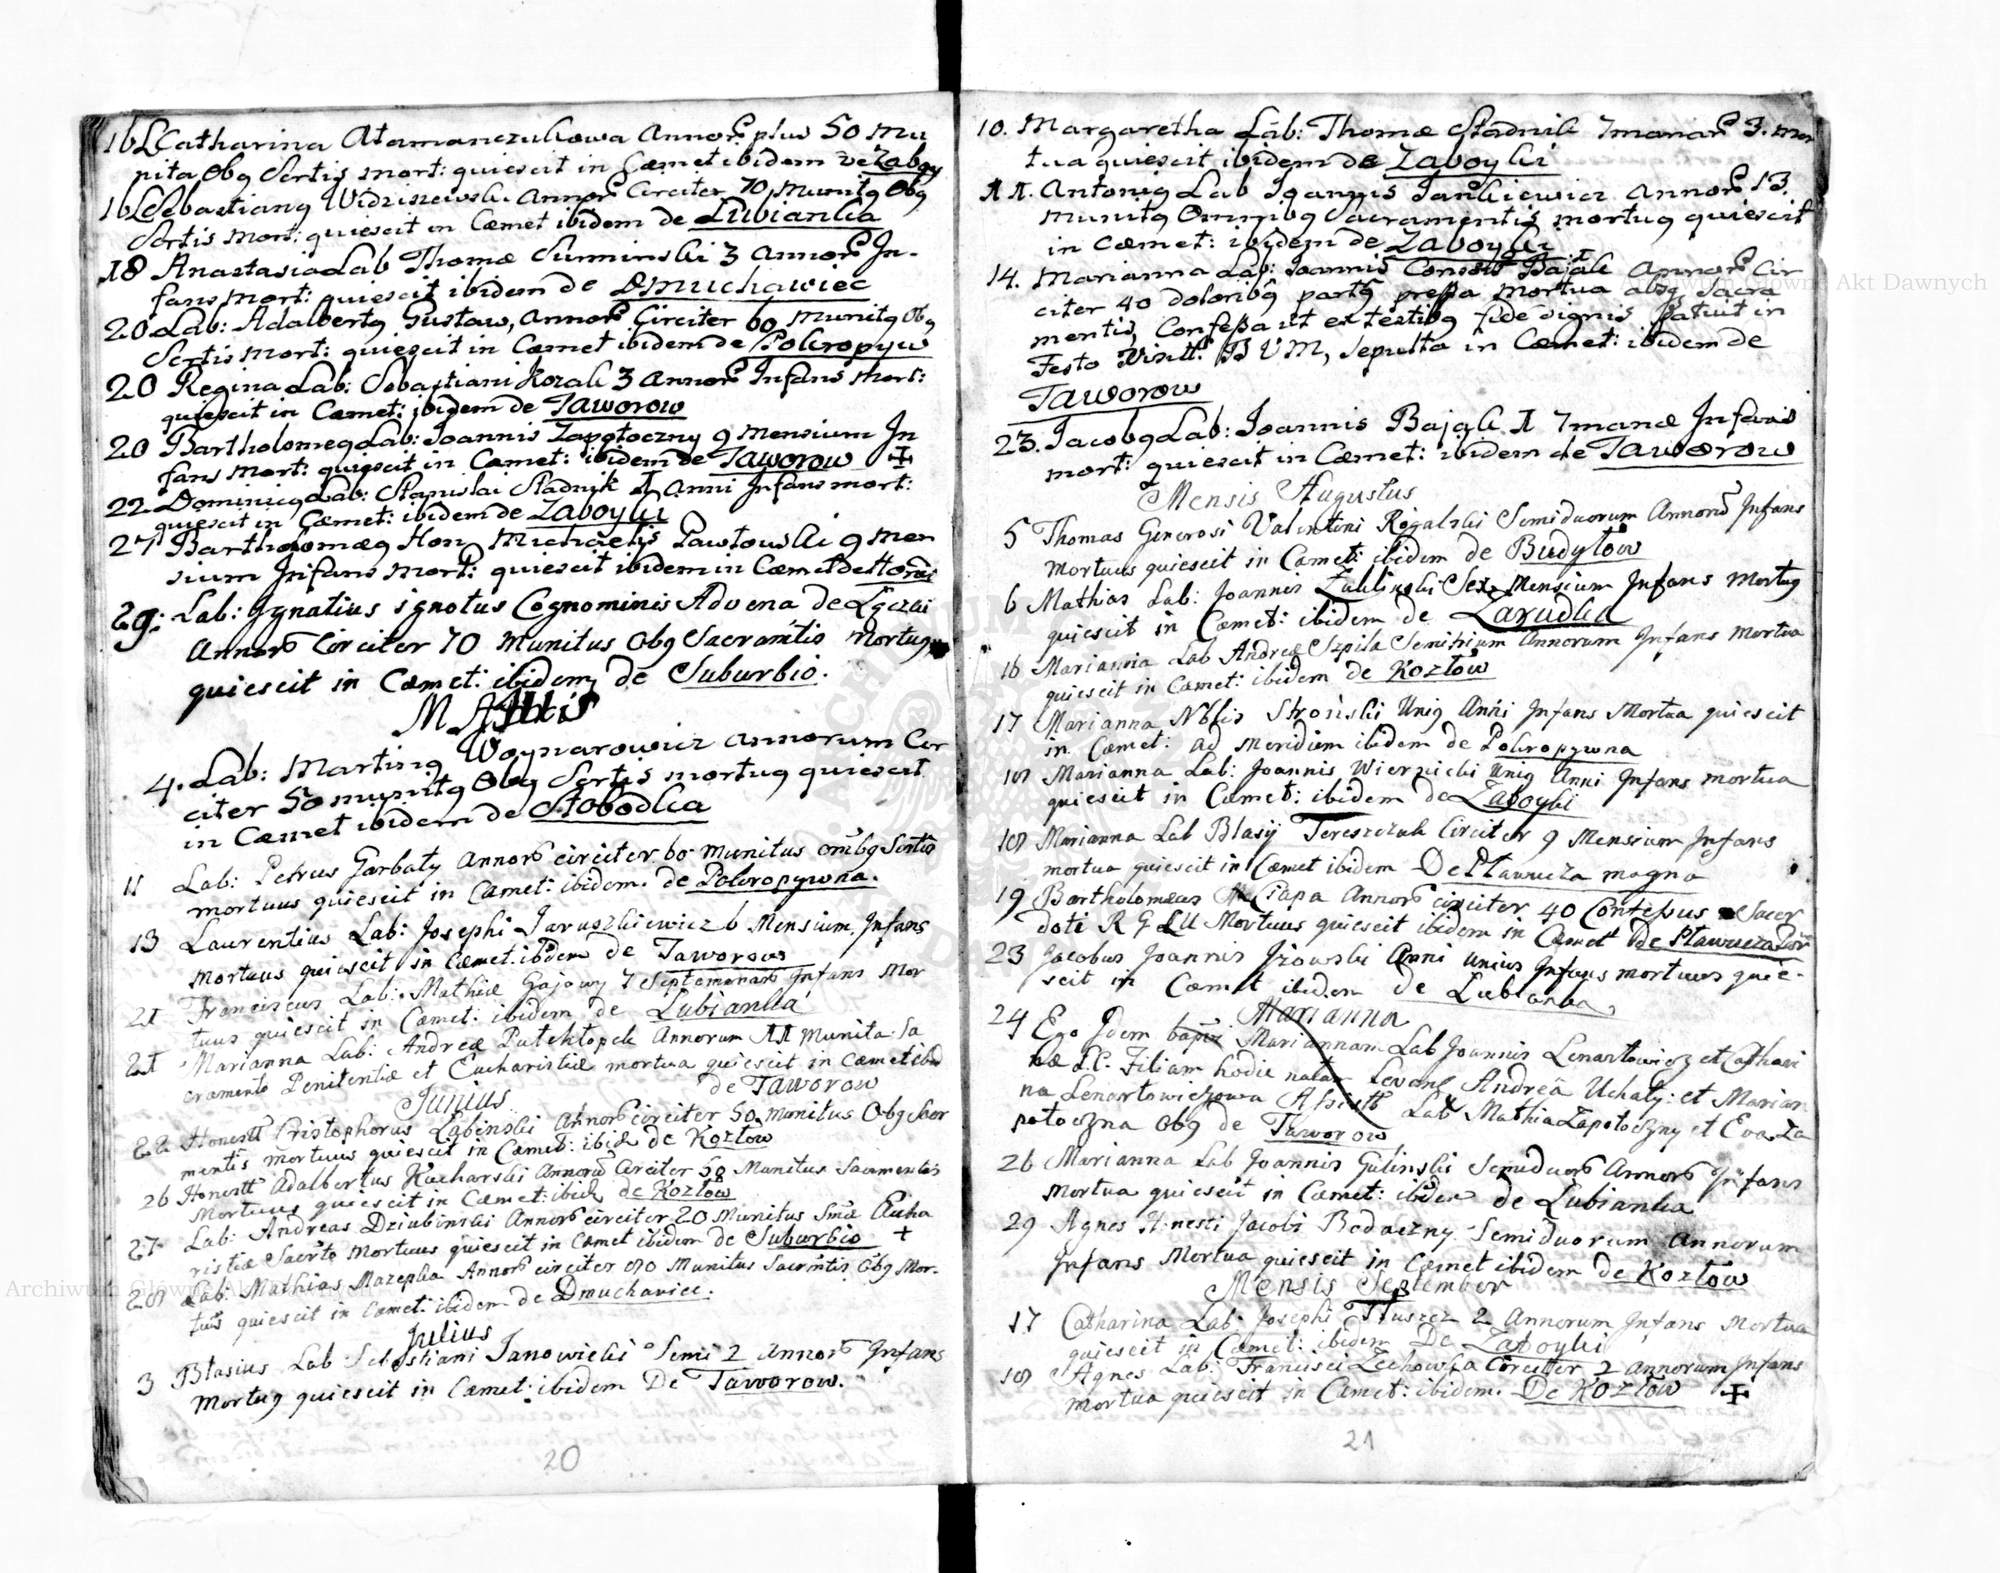 16 L Catharina Atamanczukowa Annor plus 50 Mu
nita Obq Scrtis mort: quiescit in Cæmet ibidem de Zaboy
16 L Sebastianq Widziszewski Annor Circiter 70 Munitq Obq
Scrtis Mort: quiescit in Cæmet ibidem de Lubianka
18 Anastasia Lab Thomæ Suminski 3 Annor In-
fans Mort: quiescit ibidem de Dmuchawiec
20 Lab: Adalbertq Gustaw, Annor Circiter 60 Munitq Obq
Scrtis Mort: quiescit in Cæmet ibidem de Pokropyw
20 Regina Lab: Sebastiani Kozak 3 Annor Infans Mort:
quiescit in Cæmet: ibidem de Jaworow
20 Bartholomeq Lab: Joannis Zapotoczny 9 Mensium In
fans Mort: quiescit in Cæmet: ibidem de Jaworow +
22 Dominicq Lab: Stanislai Stadnyk 1 Anni Infans mort:
quiescit in Cæmet: ibidem de Zaboyki
27 Bartholomæq Hon Michaelis Pawłowski 9 Men
sium Infans Mort: quiescit ibidem in Cæmet de
29: Lab: Ignatius ignotus Cognominis Advena de
Annor Circiter 70 Munitus Obq Sacramtis Mortuq
quiescit in Cæmet: ibidem de Suburbio.
M
4. Lab: Martinq Woynarowicz Annorum Cir
citer 50 munitq Obq Scrtis mortuq quiescit
in Cæmet ibidem de Słobodka
11 Lab: Petrus Garbaty Annor circiter 60 munitus omibq Scrtis
mortuus quiescit in Cæmet: ibidem de Pokropywna.
13 Laurentius Lab: Josephi Jaruszkiewicz 6 Mensium Infans
Mortuus quiescit in Cæmet: ibidem de Jaworow
21 Franciscus Lab: Mathiæ Gajowy 7 Septemanar Infans Mor
tuus quiescit in Cæmet: ibidem de Lubianka
21 Marianna Lab: Andreæ Annorum 11 Munita Sa
cramento Penitentiæ et Eucharistiæ mortua quiescit in Cæmet ibid
de Jaworow
Junius
22 Honestt Cristophorus Łabinski Annor circiter 50 munitus Obq Sacr
mentis mortuus quiescit in Cæmet: ibid de Kozłow
26 Honestt Adalbertus Kucharski Annorū Circiter 50 Munitus Sacmentis
Mortuus quiescit in Cæmet: ibid de Kozłow
27 Lab: Andreas Dziubinski Annor circiter 20 Munitus Smæ Eucha
ristiæ Sacrto Mortuus quiescit in Cæmet ibidem de Suburbio +
28 Lab: Mathias Mazepka Annor circiter 80 Munitus Sacrmtis Obq Mor-
tuus quiescit in Cæmet: ibidem de Dmuchawiec.
Julius
3 Blasius Lab Sebastiani Janowicki Semi 2 Annor Infans
Mortuq quiescit in Cæmet: ibidem De Jaworow.
20
10. Margaretha Lab: Thomæ Stadnik 7manar 3. Mor
tua quiescit ibidem de Zaboyki
11. Antoniq Lab Joannis Jankiewicz Annor 13.
Munitq Omnibq Sacramentis mortuq quiescit
in Cæmet: ibidem de Zaboyki
14. Marianna Lab: Joannis Consort Bajak Annor Cir
citer 40 doloribq partq pressa Mortua absq Sacra
mentis, Confessa ut ex testibq fide dignis Patuit in
Festo Visitt: B V M, Sepulta in Cæmet: ibidem de
Jaworow
23. Jacobq Lab: Joannis Bajak 1 7manæ Infans
mort: quiescit in Cæmet: ibidem de Jaworow
Mensis Augustus
5 Thomas Generosi Valentini Rogalski Semiduorum Annorū Infans
Mortuus quiescit in Cæmet: ibidem de Budyłow
6 Mathias Lab: Joannis Zablinski Sex Mensium Infans Mortuq
quiescit in Cæmet: ibidem de Zarudka
16 Marianna Lab Andreæ Szpila Semitrium Annorum Infans Mortua
quiescit in Cæmet: ibidem de Kozłow
17 Marianna Nblis Stroński Uniq Anni Infans Mortua quiescit
in Cæmet: ad Meridiem ibidem de Pokropywna
18 Marianna Lab: Joannis Wierzbicki Uniq Anni Infans mortua
quiescit in Cæmet: ibidem de Zaboyki
18 Marianna Lab Blasij Tereszczuk Circiter 9 Mensium Infans
mortua quiescit in Cæmet ibidem De Pławucza magna
19 Bartholomæus Czapa Annor circiter 40 Confessus Sacer
doti R G LU Mortuus quiescit ibidem in Cæmet De Pławucza
23 Jacobus Joannis Jżowski Anni Unius Infans mortuus quie-
scit in Cæmet ibidem de Lubianka
Marianna
24 Ego Idem bapzi Mariannam Lab Joannis Lenartowicz et Cathari
næ L.C. Filiam hodie natam Levant Andreā Uchaty: et Marian
na Lenartowiczowa Assistt Lab Mathia Zapotoczny et Eva Za
potoczna Obq de Jaworow
26 Marianna Lab Joannis Gulinski Semiduor Annor Infans
Mortua quiescit in Cæmet: ibidem de Lubianka
29 Agnes Honesti Jacobi Bednaczny Semiduorum Annorum
Infans Mortua quiescit in Cæmet ibidem de Kozłow
Mensis September
17 Catharina Lab: Josephi Tłuszcz 2 Annorum Infans Mortua
quiescit in Cæmet: ibidem De Zaboyki
18 Agnes Lab: Francisci Zechowska Circitter 2 annorum Infans
mortua quiescit in Cæmet: ibidem. De Kozłow +
21